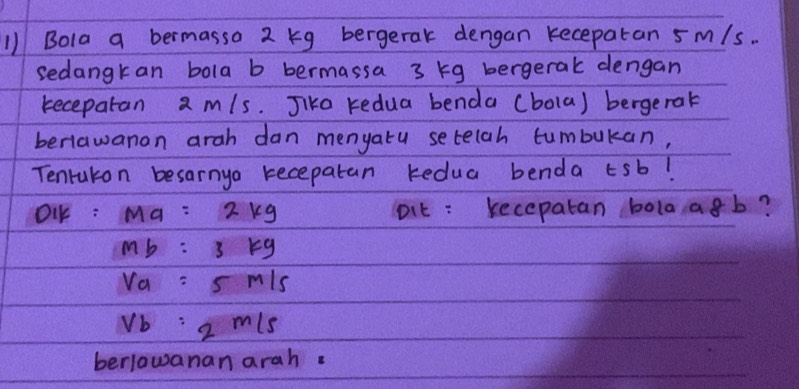 1) Bola a bermassa 2 kg bergerak dengan kecepatan 5 m/s..
sedangkan bola b bermassa 3 kg bergerak dengan
kecepatan 2 m/s. Jika kedua benda (bola) bergerak
berlawanan arah dan menyatu setelah tumbukan,
Tentukan besarnya kecepatan kedua benda tsb!
Dik : Ma = 2 kg Dit : kecepatan bola a & b?
mb : 3 kg
Va = 5 m/s
Vb : 2 m/s
berlawanan arah :